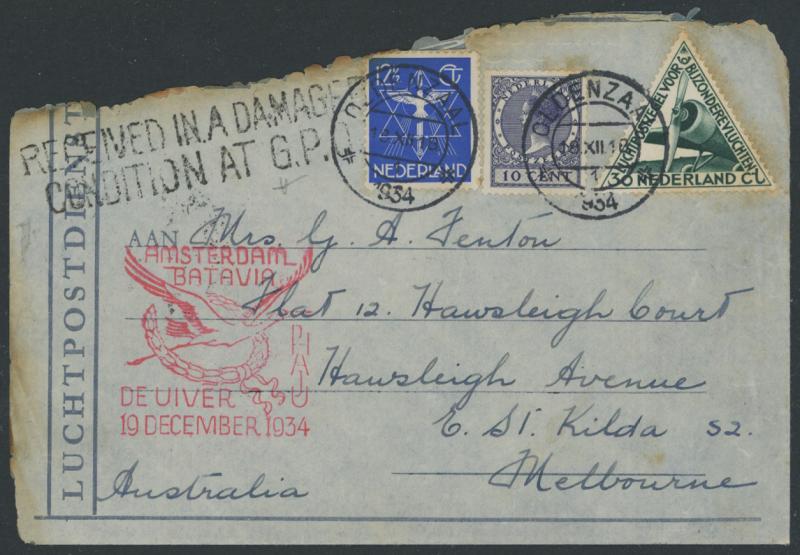 12½ CT
NEDERLAND
NEDERLAND
10 CENT
LUCHTPOSTZEGEL VOOR
BIJZONDERE VLUCHTEN
30 NEDERLAND CT
OLDENZAAL
1934
OLDENZAAL
18 XII 16
1
1934
RECEIVED IN A DAMAGED
CONDITION AT G.P.O.
LUCHTPOSTDIENST
AAN Mrs. G. A. Fenton
Flat 12. Hawsleigh Court
Hawsleigh Avenue
E. St. Kilda S2.
Melbourne
Australia
AMSTERDAM
BATAVIA
PH AJU
DE UIVER
19 DECEMBER 1934